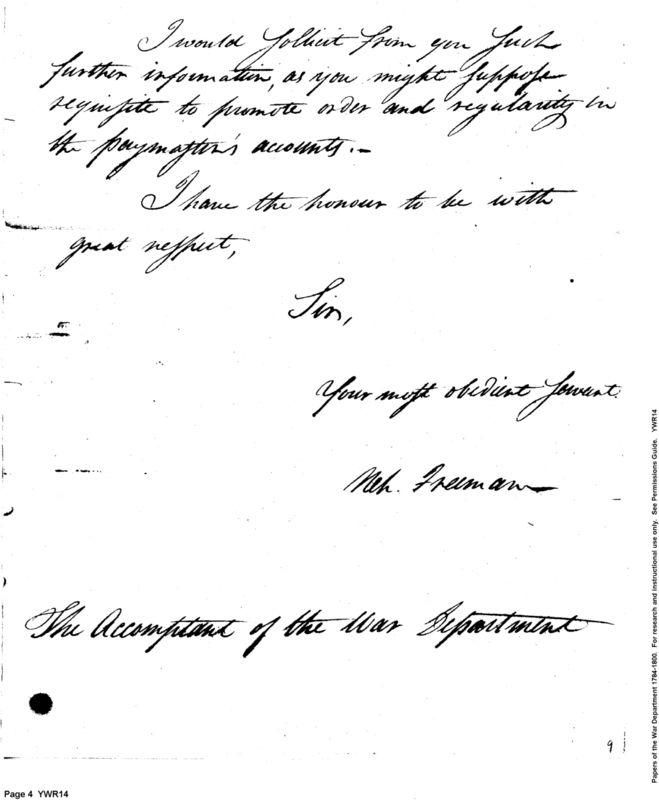 I would sollicit from you such
further information, as you might suppose
requisite to promote order and regularity in
the paymaster's accounts.-
I have the honour to be with
great respect,
Sir,
Your most obedient servant.
Neh. Freeman
The Accomptant of the War Department
9
Page 4 YWR14
Papers of the War Department 1784-1800. For research and instructional use only. See Permissions Guide. YWR14